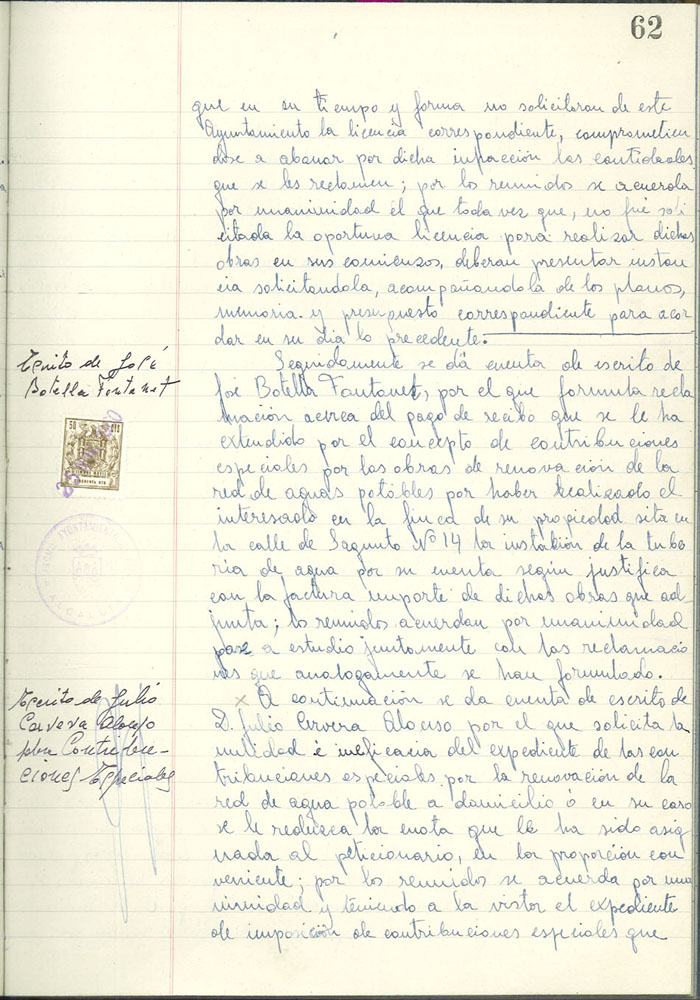 62
que en su tiempo y forma no solicitaron de este
Ayuntamiento la licencia correspondiente, comprometien
dose a abonar por dicha infracción las cantidades
que se les reclamen; por los reunidos se acuerda
por unanimidad el que toda vez que, no fué soli
citada la oportuna licencia para realizar dichas
obras en sus comienzos, deberan presentar instan
cia solicitandola, acompañandola de los planos,
memoria y presupuesto correspondiente para acor
dar en su dia lo precedente.
Escrito de José
Botella Fontanet
Seguidamente se dá cuenta de escrito de
José Botella Fontanet, por el que formula recla
mación acerca del pago de recibo que se le ha
extendido por el concepto de contribuciones
especiales por las obras de renovación de la
red de aguas potables por haber realizado el
interesado en la finca de su propiedad sita en
la calle de Sagunto Nº 14 la instalción de la tube
ria de agua por su cuenta según justifica
con la factura importe de dichas obras que ad
junta; los reunidos acuerdan por unanimidad
pase a estudio juntamente con las reclamacio
nes que analogamente se han formulado.
50 CTS
Escrito de Julio
Cervera Alonso
sobre Contribu-
ciones Especiales
A continuación se da cuenta de escrito de
D. Julio Cervera Alonso por el que solicita la
nulidad é ineficacia del expediente de las con
tribuciones especiales por la renovación de la
red de agua potable a domicilio ó en su caso
se le reduzca la cuota que le ha sido asig
nada al peticionario, en la proporción con
veniente; por los reunidos se acuerda por una
nimidad y teniendo a la vista el expediente
de imposición de contribuciones especiales que